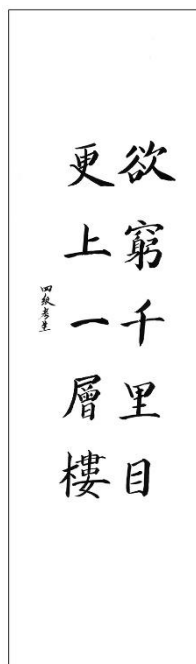 欲窮千里目
更上一層樓
四級考生